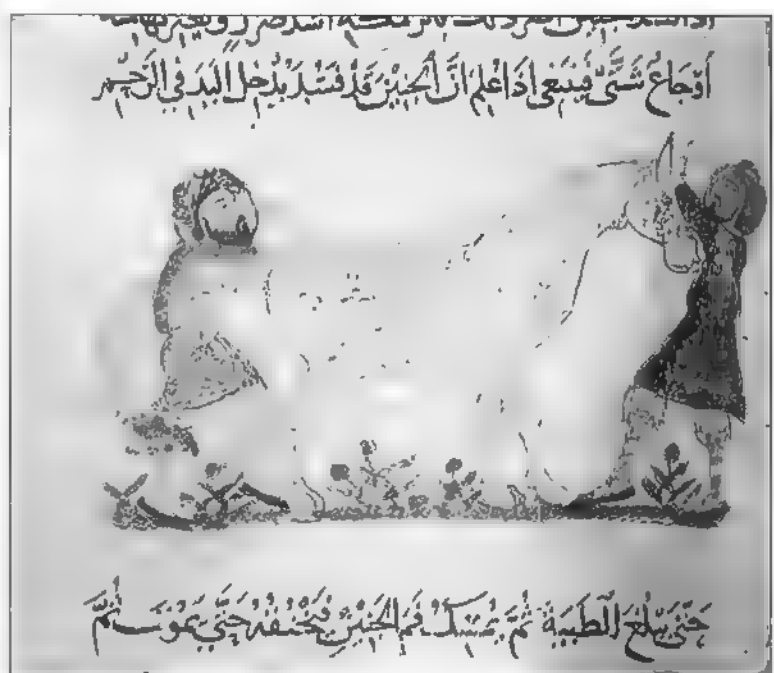 أوجاعٌ شتَّى فينبغي اذا علم انَّ الجنين قد فسد يدخل اليد في الرَّحم
حتى يبلغ الطبية ثمَّ يمسك فم الجنين فيخنقه حتَّى يموت ثمَّ